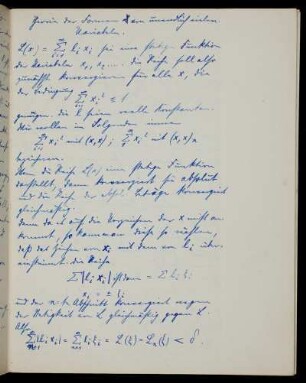 Theorie der Formen x von unendlichvielen
Variabeln.
L(x) = Σ l_i x_i sei eine stetige Funktion
der Variabeln x₁, x₂.... die Reihe soll also
zunächst konvergieren für alle x, die
der Bedingung Σ x_i² ≤ 1
genügen. die l seien reelle Konstanten.
Wir wollen im Folgenden immer
Σ x_i² mit (x,x) ; Σ x_i² mit (x,x)_n
bezeichnen.
Wenn die Reihe L(x) eine stetige Funktion
darstellt, dann konvergiert sie absolut
und die Reihe der Beträge konvergiert
gleichmäßig.
denn da es auf die Vorzeichen der x nicht an
kommt, so können wir diese so wählen,
daß das Zeichen von x_i mit dem von l_i über-
einstimmt. die Reihe
Σ |l_i x_i| ist dann = Σ l_i ξ_i
und der n-te Abschnitt konvergiert wegen
der Stetigkeit von L gleichmäßig gegen L.
Also
Σ |l_i x_i| = Σ l_i ξ_i = L(ξ) - L_n(ξ) < δ.